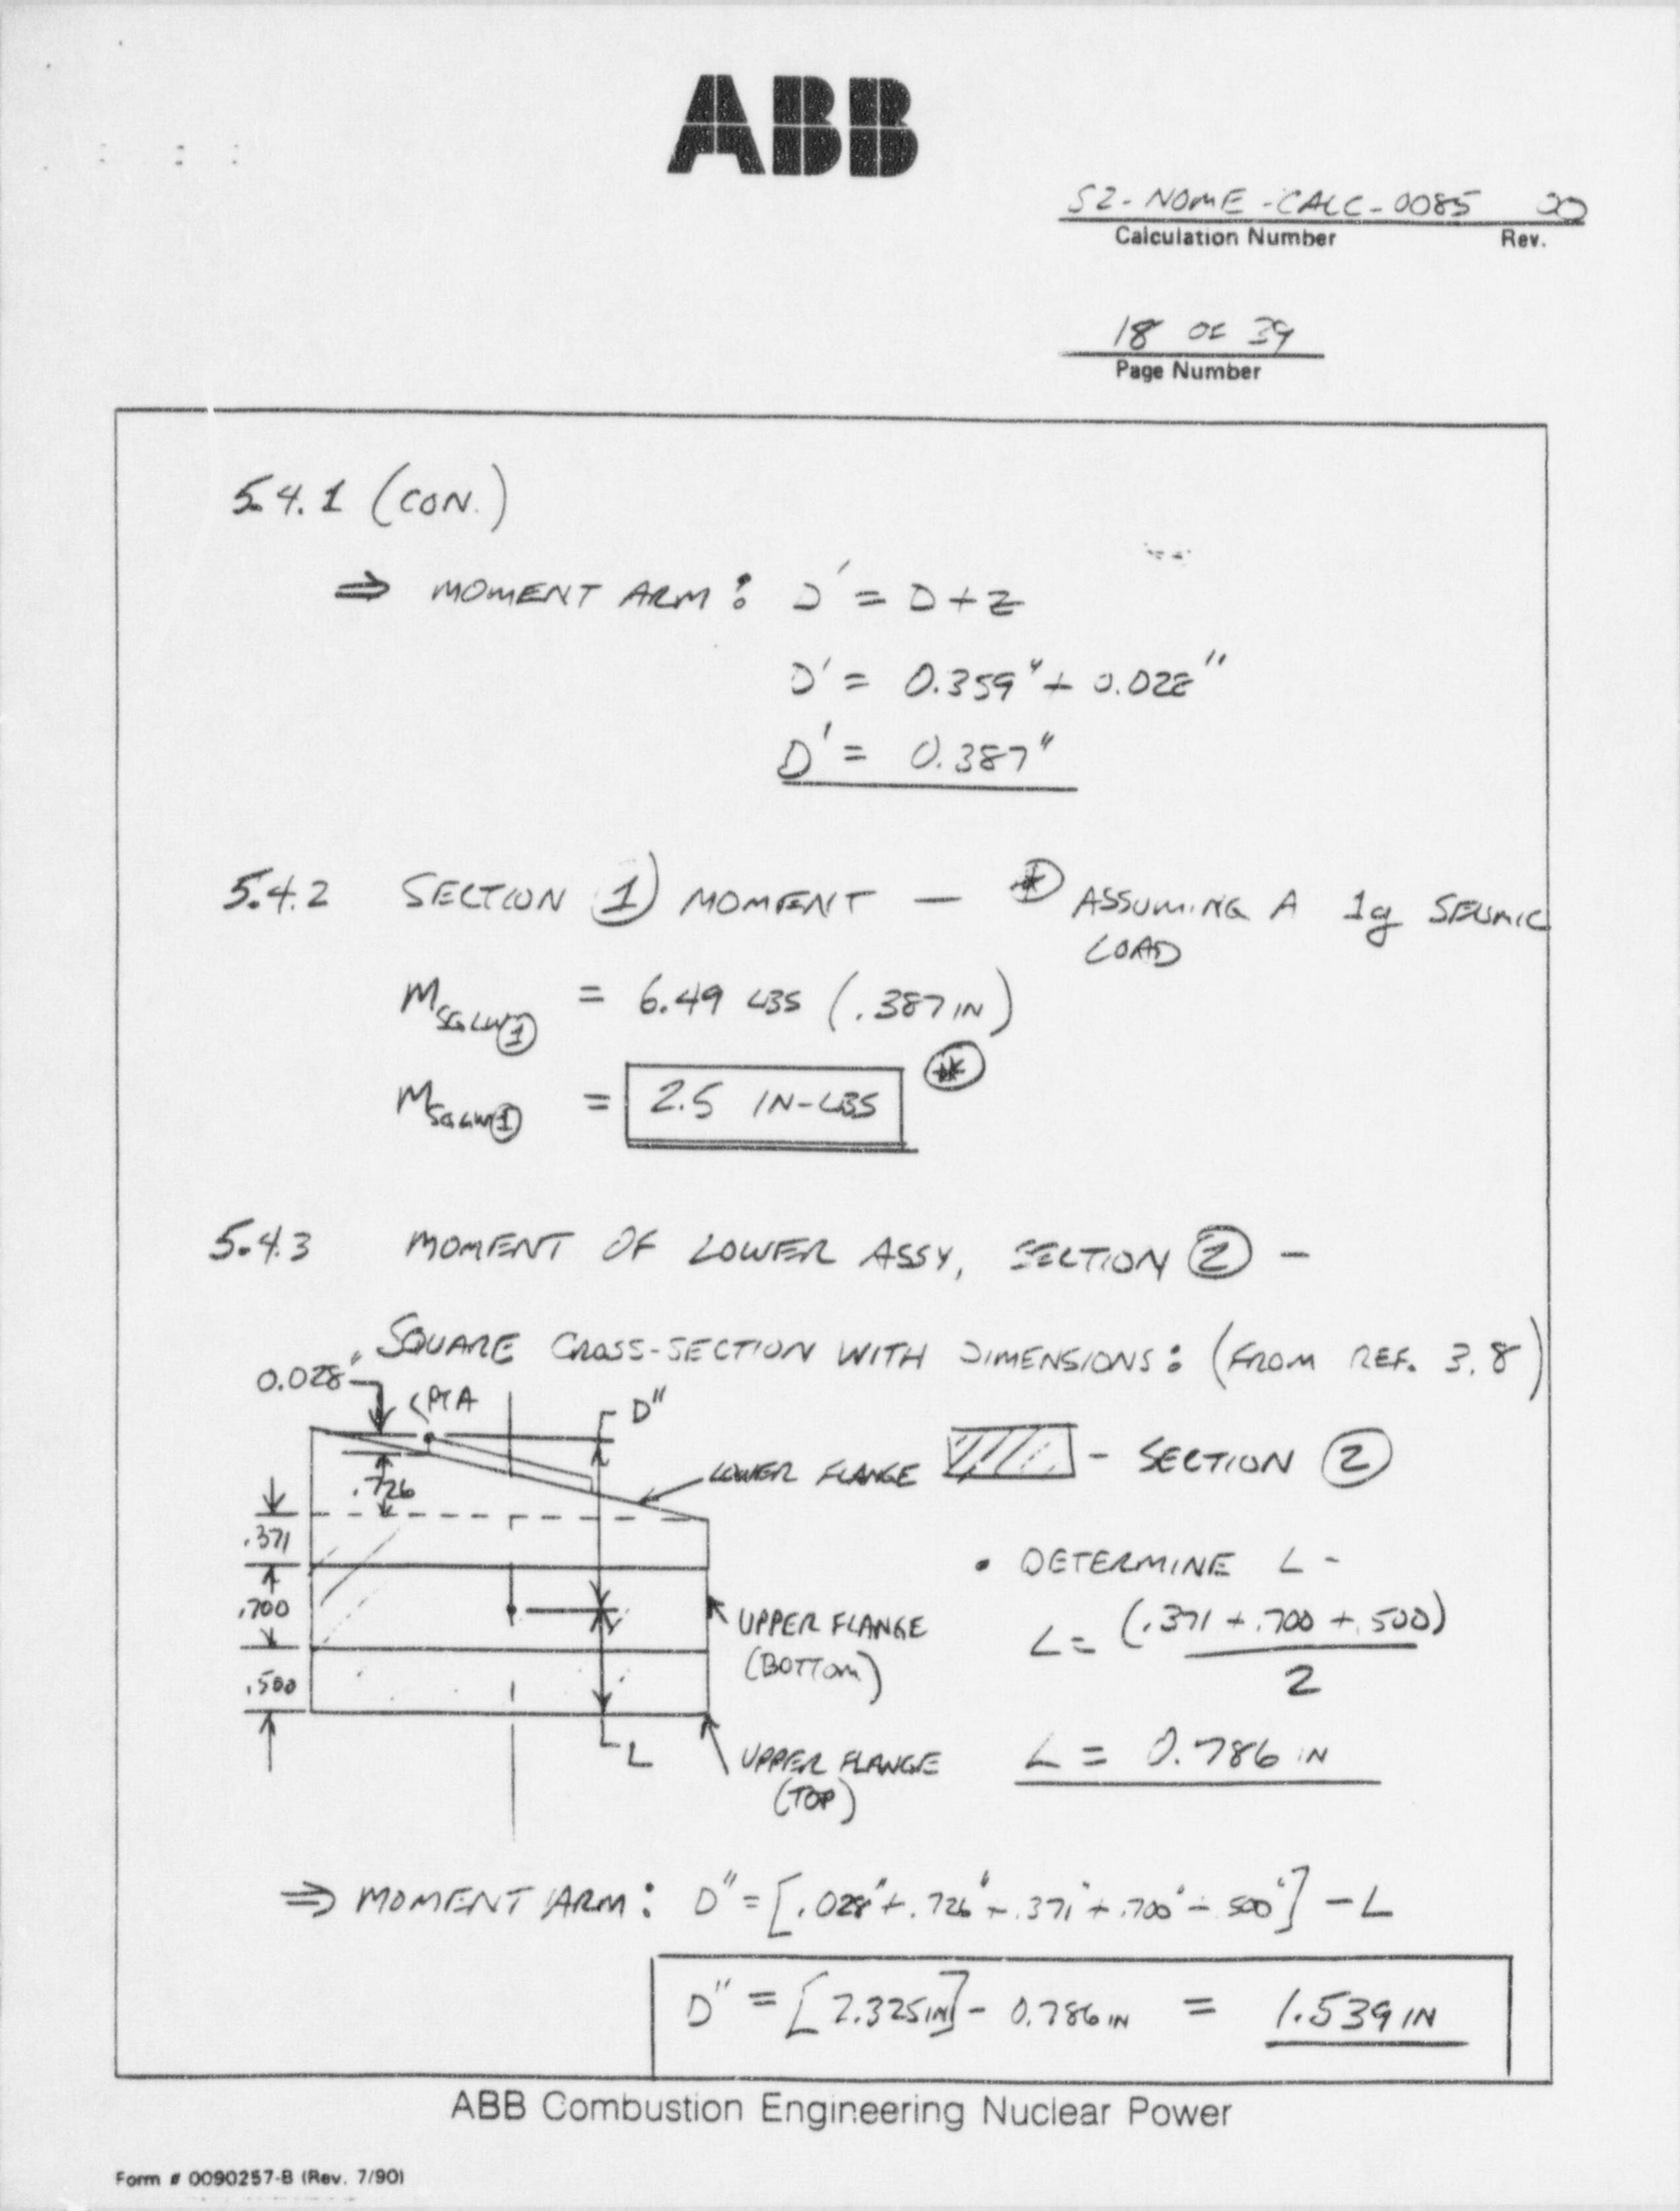 ABB
S2-NOME-CALC-0085 00
Calculation Number Rev.
18 OF 39
Page Number
5.4.1 (CON.)
⇒ MOMENT ARM: D' = D+Z
D' = 0.359" + 0.028"
D' = 0.387"
5.4.2 SECTION ① MOMENT — ⊛ ASSUMING A 1g SEISMIC
LOAD
M SGLW① = 6.49 LBS (.387 IN)
M SGLW① = 2.5 IN-LBS ⊛
5.4.3 MOMENT OF LOWER ASSY, SECTION ② —
SQUARE CROSS-SECTION WITH DIMENSIONS: (FROM REF. 3.8)
0.028"
PT A
D"
LOWER FLANGE
- SECTION ②
.726
.371
.700
.500
UPPER FLANGE
(BOTTOM)
L
UPPER FLANGE
(TOP)
• DETERMINE L -
L = (.371 + .700 + .500)
2
L = 0.786 IN
⇒ MOMENT ARM: D" = [.028" + .726" + .371" + .700" + .500"] - L
D" = [2.325 IN] - 0.786 IN = 1.539 IN
ABB Combustion Engineering Nuclear Power
Form # 0090257-B (Rev. 7/90)